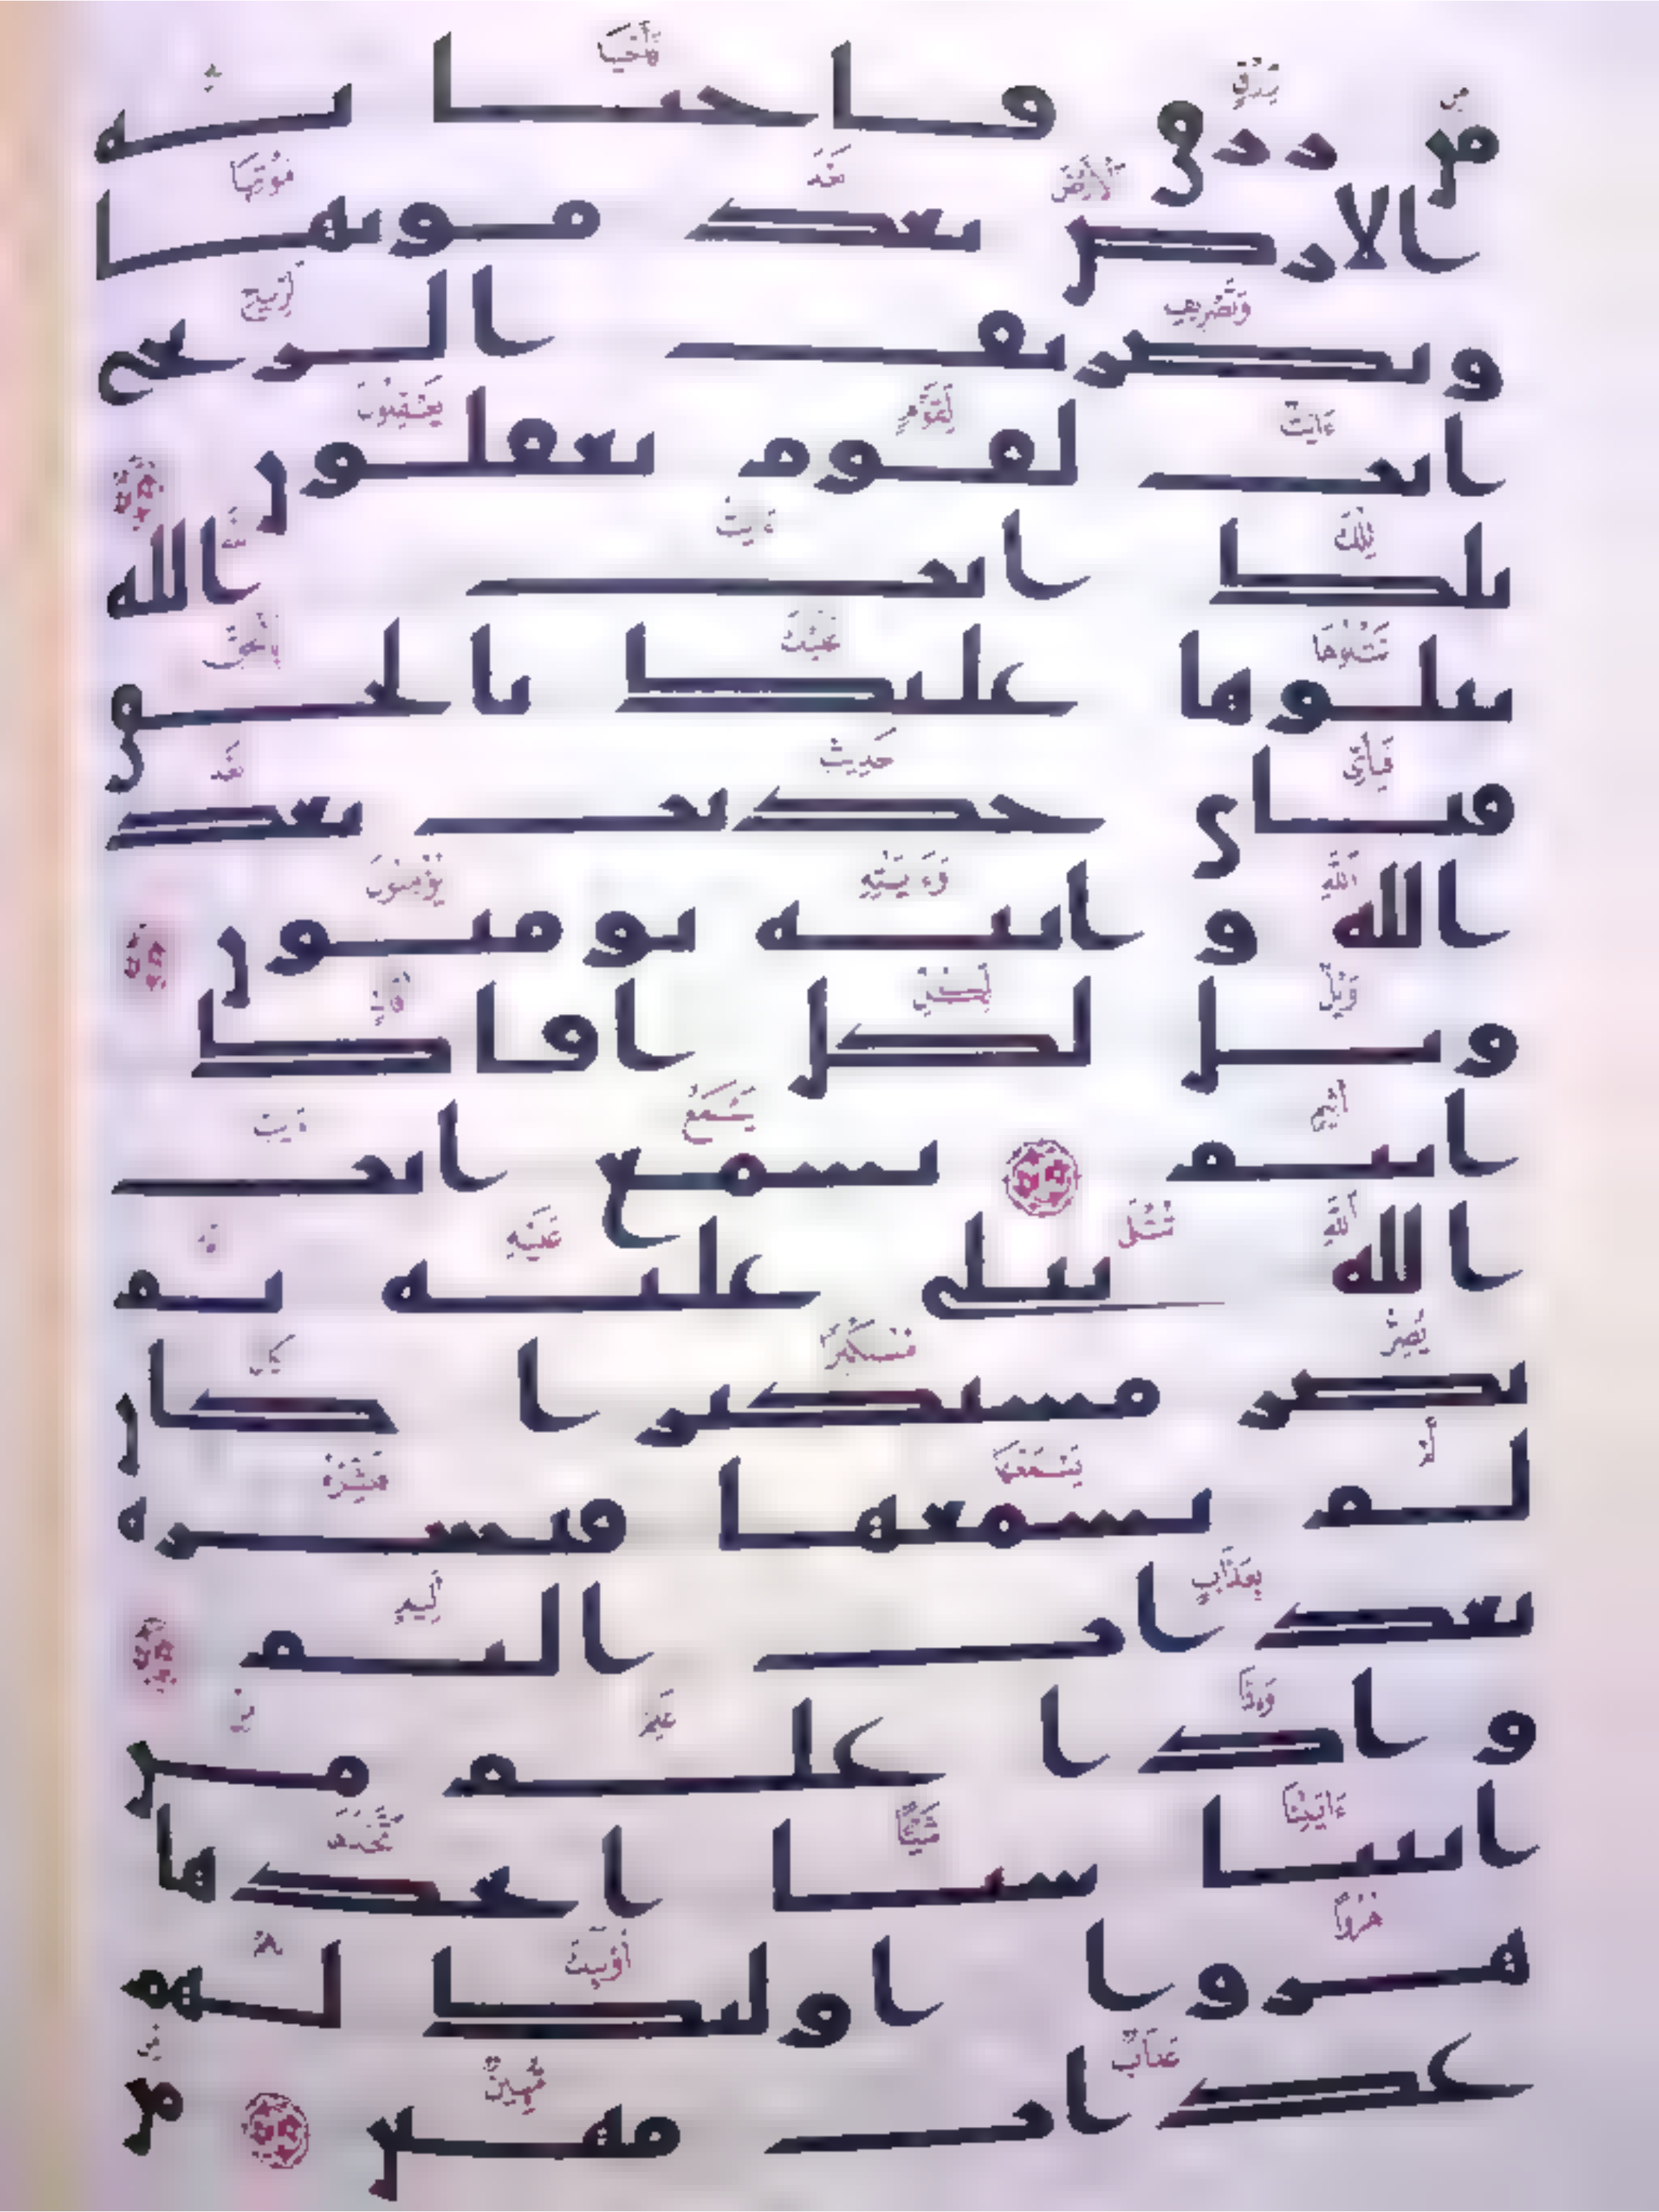 من رزق فاحيا به
الارض بعد موتها
وتصريف الريح
ايت لقوم يعقلون
تلك ايت الله
نتلوها عليك بالحق
فباي حديث بعد
الله وايته يومنون
ويل لكل افاك
اثيم يسمع ايت
الله تتلى عليه ثم
يصر مستكبرا كان
لم يسمعها فبشره
بعذاب اليم
واذا علم من
ايتنا شيا اتخذها
هزوا اوليك لهم
عذاب مهين من